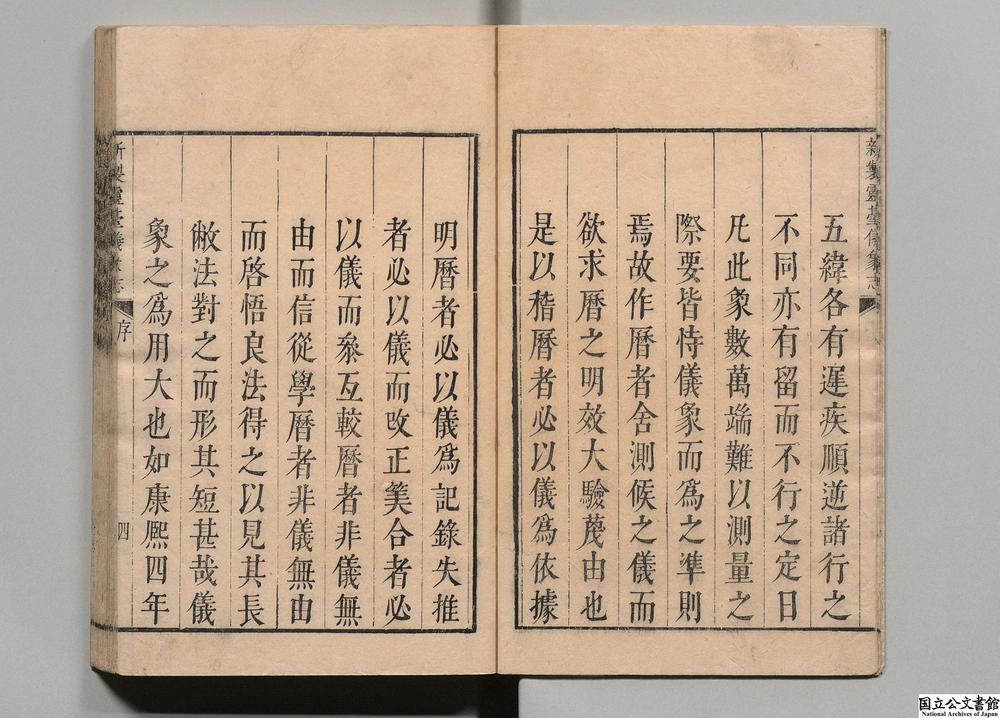 新製靈臺儀象志
五緯各有遲疾順逆諸行之
不同亦有留而不行之定日
凡此象數萬端難以測量之
際要皆恃儀象而爲之準則
焉故作曆者舍測候之儀而
欲求曆之明效大驗蔑由也
是以稽曆者必以儀爲依據
明曆者必以儀爲記錄失推
者必以儀而改正筭合者必
以儀而叅互較曆者非儀無
由而信從學曆者非儀無由
而啓悟良法得之以見其長
敝法對之而形其短甚哉儀
象之爲用大也如康熈四年
新製靈臺儀象志
序
四
国立公文書館
National Archives of Japan